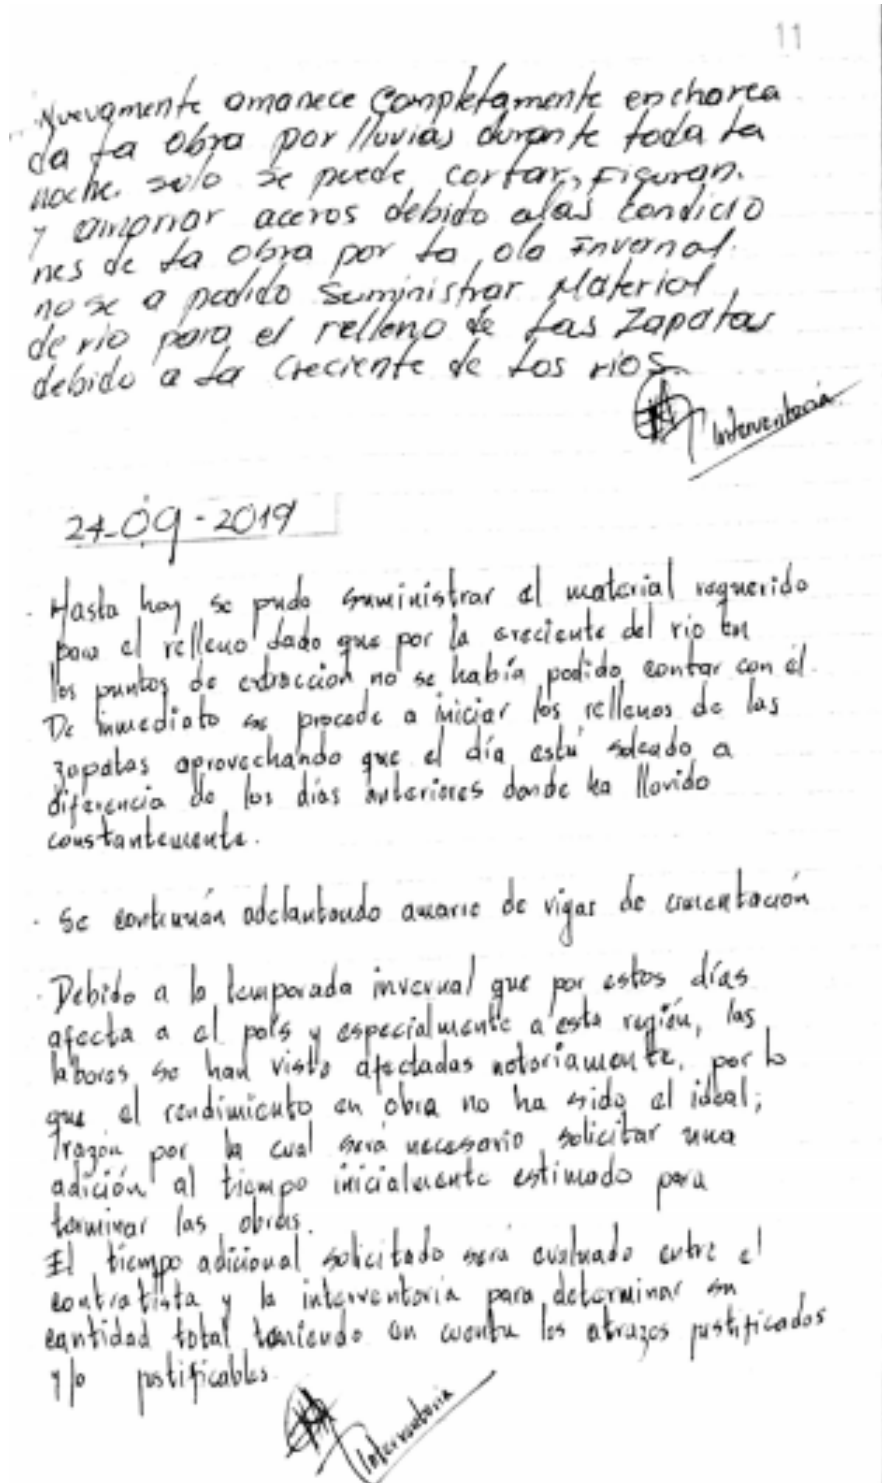 11
Nuevamente amanece completamente encharca
da la obra por lluvias durante toda la
noche. solo se puede cortar, Figuran.
y amarrar aceros debido a las condicio
nes de la obra por la ola Invernal.
no se a podido Suministrar Material
de rio para el relleno de las Zapatas
debido a la creciente de los rios.
Interventoria.
24-09-2019
. Hasta hoy se pudo suministrar el material requerido
para el relleno dado que por la creciente del rio en
los puntos de extracción no se había podido contar con él.
De inmediato se procede a iniciar los rellenos de las
zapatas aprovechando que el día está soleado a
diferencia de los días anteriores donde ha llovido
constantemente.
. Se continuán adelantando amarre de vigas de cimentación
. Debido a la temporada invernal que por estos días
afecta a el país y especialmente a esta región, las
labores se han visto afectadas notoriamente, por lo
que el rendimiento en obra no ha sido el ideal;
razón por la cual será necesario solicitar una
adición al tiempo inicialmente estimado para
terminar las obras.
El tiempo adicional solicitado será evaluado entre el
contratista y la interventoría para determinar su
cantidad total teniendo en cuenta los atrazos justificados
y/o justificables.
Interventoria